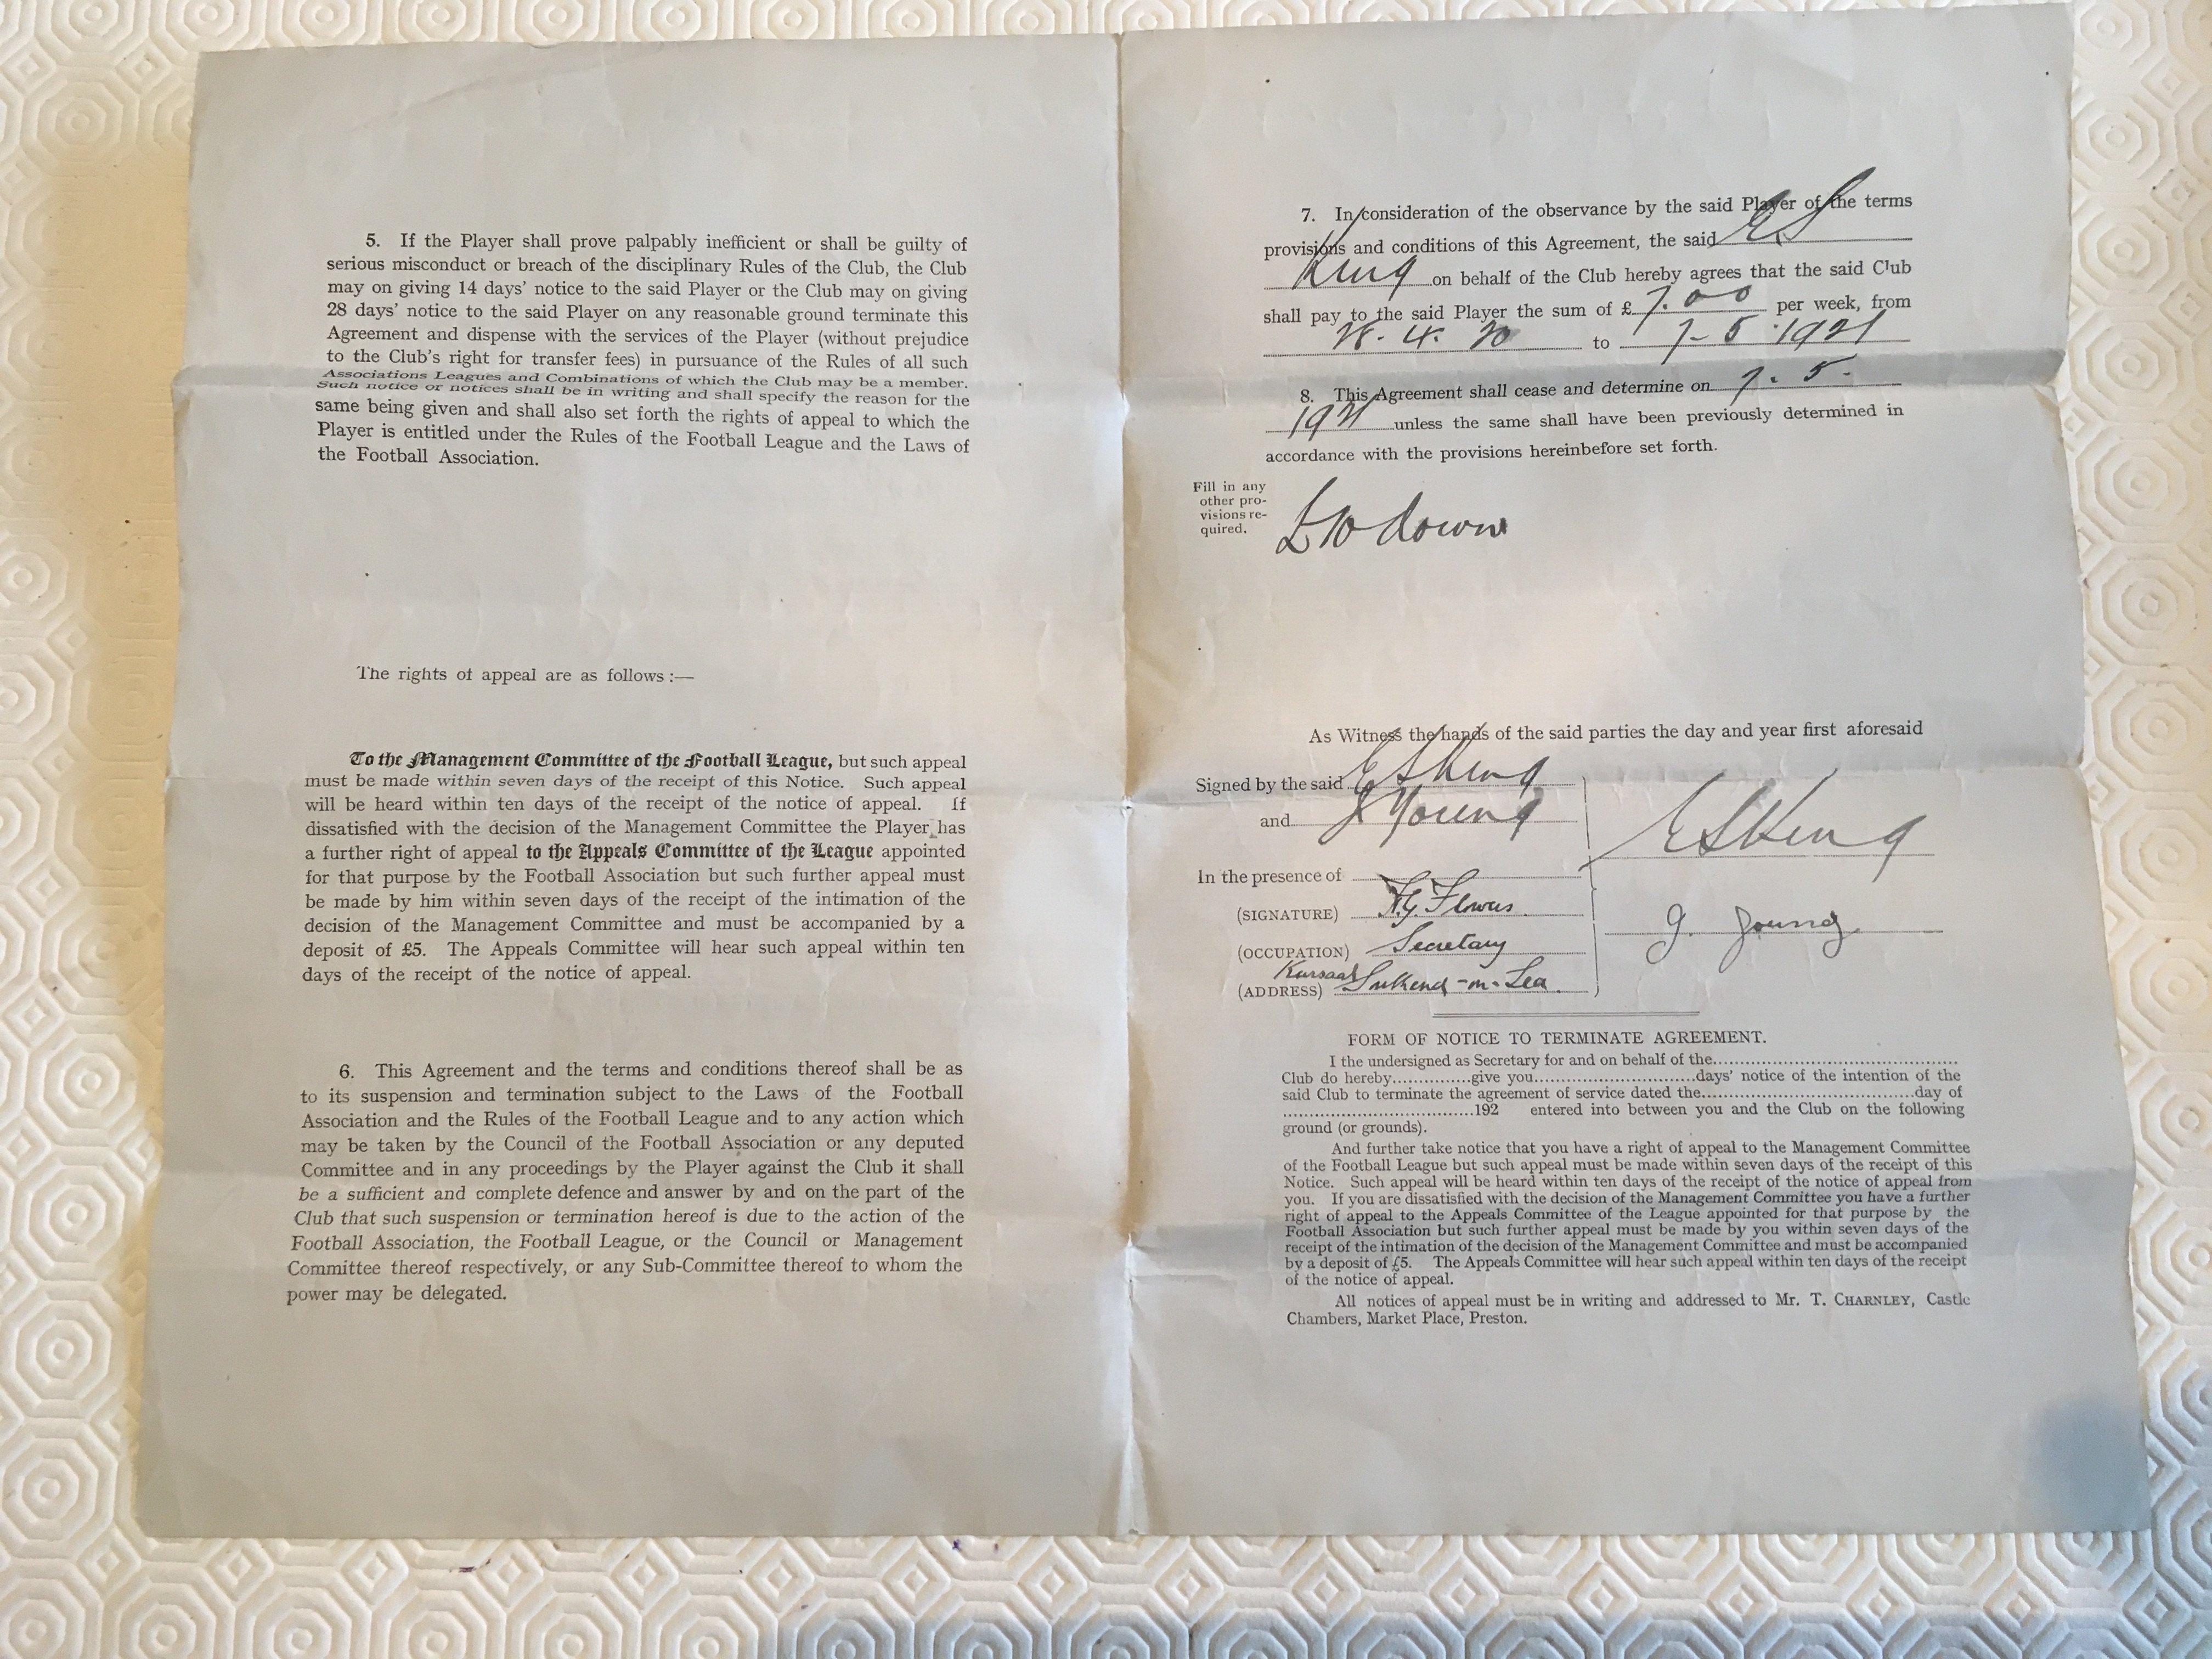 5. If the Player shall prove palpably inefficient or shall be guilty of
serious misconduct or breach of the disciplinary Rules of the Club, the Club
may on giving 14 days' notice to the said Player or the Club may on giving
28 days' notice to the said Player on any reasonable ground terminate this
Agreement and dispense with the services of the Player (without prejudice
to the Club's right for transfer fees) in pursuance of the Rules of all such
Associations Leagues and Combinations of which the Club may be a member.
Such notice or notices shall be in writing and shall specify the reason for the
same being given and shall also set forth the rights of appeal to which the
Player is entitled under the Rules of the Football League and the Laws of
the Football Association.
The rights of appeal are as follows :—
To the Management Committee of the Football League, but such appeal
must be made within seven days of the receipt of this Notice. Such appeal
will be heard within ten days of the receipt of the notice of appeal. If
dissatisfied with the decision of the Management Committee the Player has
a further right of appeal to the Appeals Committee of the League appointed
for that purpose by the Football Association but such further appeal must
be made by him within seven days of the receipt of the intimation of the
decision of the Management Committee and must be accompanied by a
deposit of £5. The Appeals Committee will hear such appeal within ten
days of the receipt of the notice of appeal.
6. This Agreement and the terms and conditions thereof shall be as
to its suspension and termination subject to the Laws of the Football
Association and the Rules of the Football League and to any action which
may be taken by the Council of the Football Association or any deputed
Committee and in any proceedings by the Player against the Club it shall
be a sufficient and complete defence and answer by and on the part of the
Club that such suspension or termination hereof is due to the action of the
Football Association, the Football League, or the Council or Management
Committee thereof respectively, or any Sub-Committee thereof to whom the
power may be delegated.
7. In consideration of the observance by the said Player of the terms
provisions and conditions of this Agreement, the said E S
King on behalf of the Club hereby agrees that the said Club
shall pay to the said Player the sum of £ 7.00 per week, from
28. 4. 20 to 7-5-1921
8. This Agreement shall cease and determine on 7. 5.
1921 unless the same shall have been previously determined in
accordance with the provisions hereinbefore set forth.
Fill in any
other pro-
visions re-
quired.
£10 down
As Witness the hands of the said parties the day and year first aforesaid
Signed by the said E S King
and J Young
E S King
In the presence of
(SIGNATURE) H.G. Flowers
J. Young
(OCCUPATION) Secretary
Kursaal
(ADDRESS) Southend-on-Sea
FORM OF NOTICE TO TERMINATE AGREEMENT.
I the undersigned as Secretary for and on behalf of the
Club do hereby give you days' notice of the intention of the
said Club to terminate the agreement of service dated the day of
192 entered into between you and the Club on the following
ground (or grounds).
And further take notice that you have a right of appeal to the Management Committee
of the Football League but such appeal must be made within seven days of the receipt of this
Notice. Such appeal will be heard within ten days of the receipt of the notice of appeal from
you. If you are dissatisfied with the decision of the Management Committee you have a further
right of appeal to the Appeals Committee of the League appointed for that purpose by the
Football Association but such further appeal must be made by you within seven days of the
receipt of the intimation of the decision of the Management Committee and must be accompanied
by a deposit of £5. The Appeals Committee will hear such appeal within ten days of the receipt
of the notice of appeal.
All notices of appeal must be in writing and addressed to Mr. T. CHARNLEY, Castle
Chambers, Market Place, Preston.